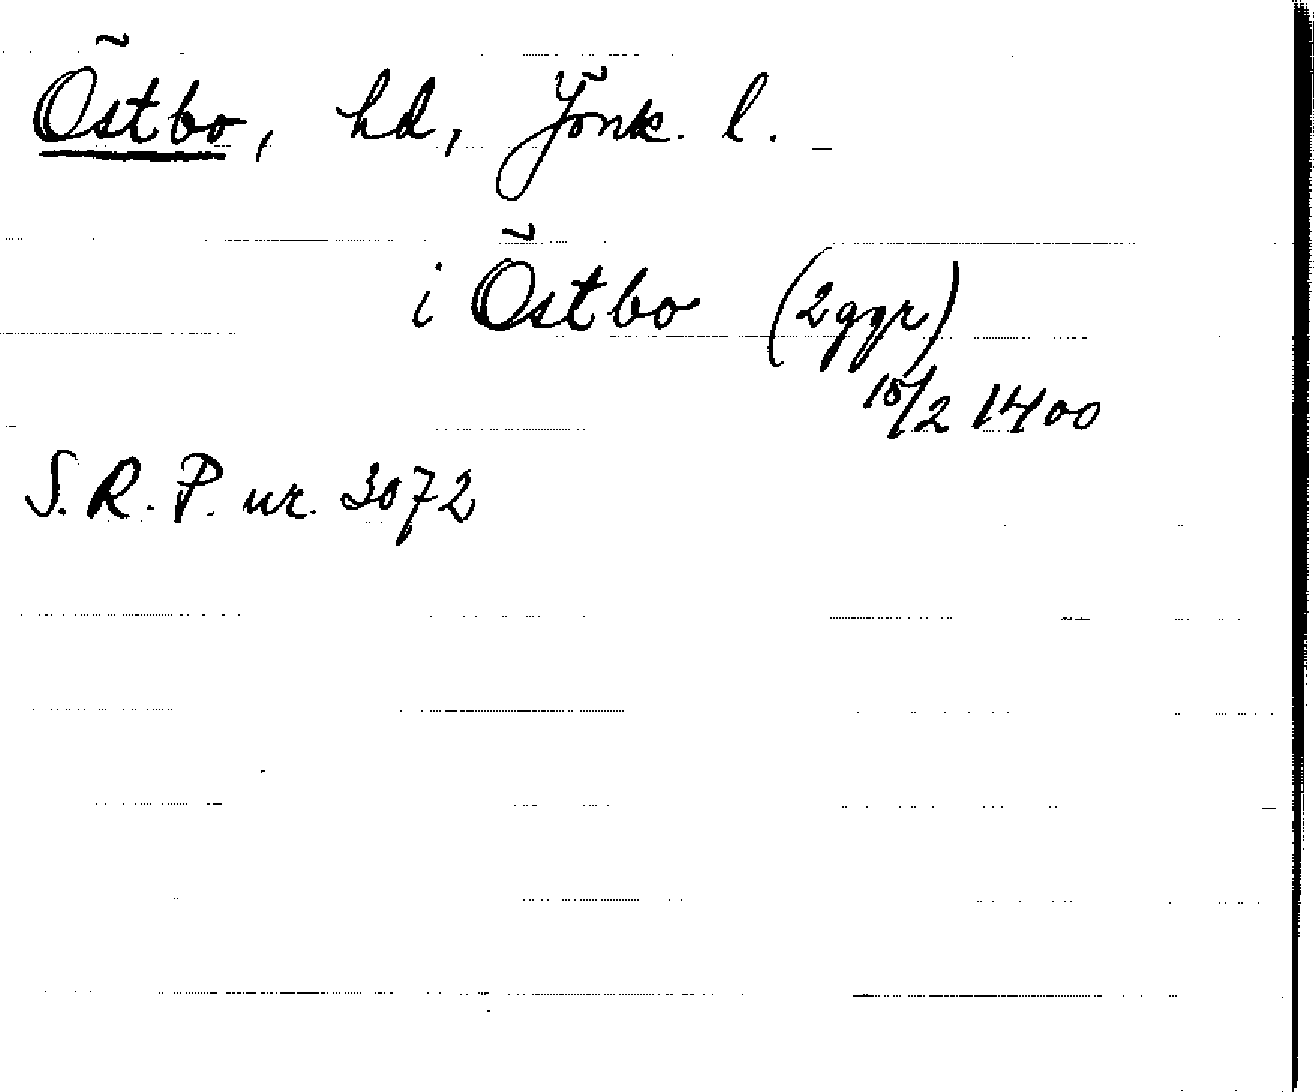 Östbo, hd, Jönk. l.
i Östbo (2ggr)
15/2 1400
S.R.P. nr. 3072